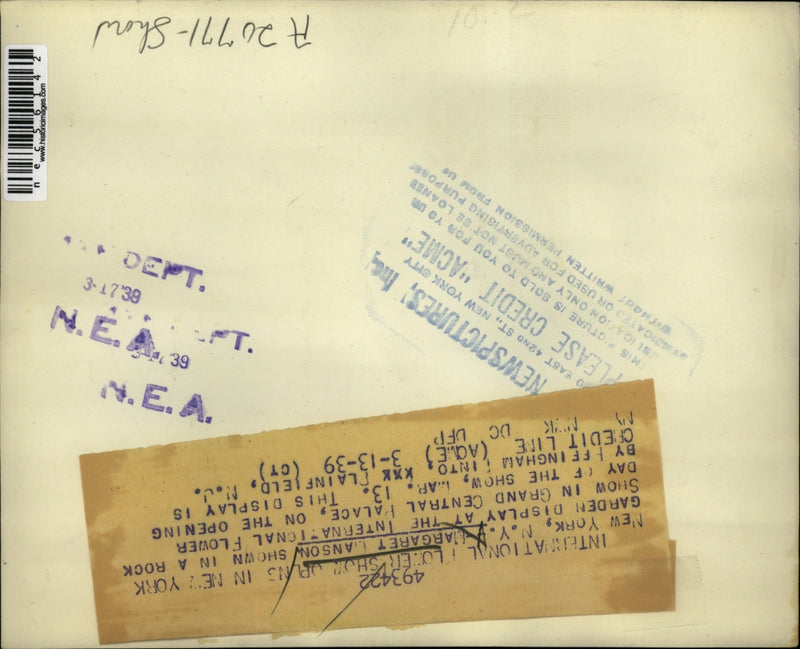 A 20771-Show
nec56142
www.historicimages.com
DEPT.
3-17'39
N.E.A.
DEPT.
'39
N.E.A.
NEWSPICTURES, Inc.
EAST 42ND ST., NEW YORK CITY
PLEASE CREDIT "ACME"
THIS PICTURE IS SOLD TO YOU FOR YO UR
PUBLICATION ONLY AND MUST NOT BE LOANED
SYNDICATED OR USED FOR ADVERTISING PURPOSE
WITHOUT WRITTEN PERMISSION FROM US
493422
INTERNATIONAL FLOWER SHOW OPENS IN NEW YORK
NEW YORK, N.Y. MARGARET LANSON SHOWN IN A ROCK
GARDEN DISPLAY AT THE INTERNATIONAL FLOWER
SHOW IN GRAND CENTRAL PALACE, ON THE OPENING
DAY OF THE SHOW, MAR. 13. THIS DISPLAY IS
BY EFFINGHAM PINTO, PLAINFIELD, N.J.
CREDIT LINE (ACME) 3-13-39 (CT)
NY NWK DC UFP